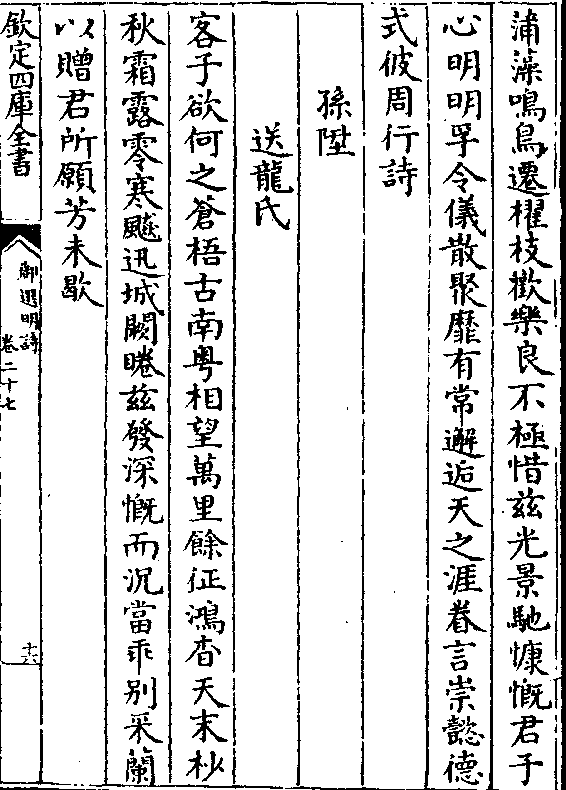 蒲藻鳴鳥遷櫂枝歡樂良不極惜兹光景馳慷慨君子
心明明孚令儀散聚靡有常邂逅天之涯眷言崇懿德
式彼周行詩
孫陞
送龍氏
客子欲何之蒼梧古南粤相望萬里餘征鴻杳天末杪
秋霜露零寒飈迅城闕睠兹發深慨而況當乖别采蘭
以贈君所願芳未歇
欽定四庫全書
御選明詩
卷二十七
十六